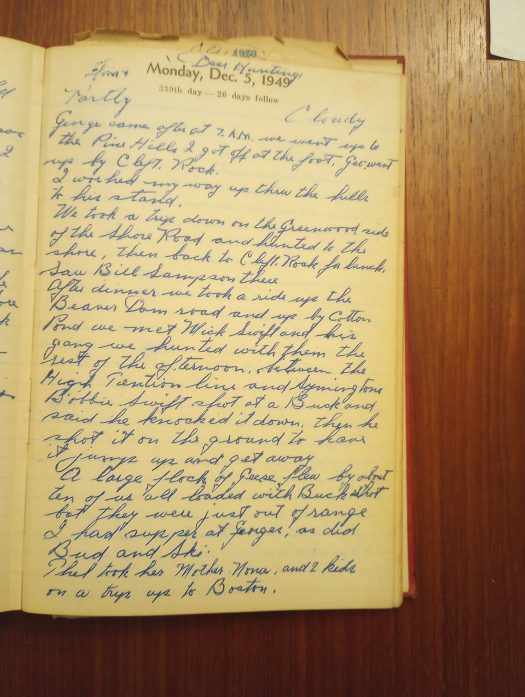 1970
Deer Hunting
Monday, Dec. 5, 1949
339th day — 26 days follow
Partly Cloudy
George came after at 7 A.M. we went up to
the Pine Hills I got off at the foot, Geo. went
up by Cleft. Rock.
I worked my way up thru the hills
to his stand.
We took a trip down on the Greenwood side
of the Shore Road and hunted to the
shore, then back to Cleft. Rock for lunch.
Saw Bill Sampson there
After dinner we took a ride up the
Beaver Dam road and up by Cotton
Pond we met Mick Swift and his
gang we hunted with them the
rest of the afternoon, between the
High Tention line and Symingtons
Bobbie Swift shot at a Buck and
said he knocked it down, then he
shot it on the ground to have
it jump up and get away
A large flock of Geese flew by about
ten of us all loaded with Buck shot
but they were just out of range
I had supper at Georges, as did
Bud and Ski.
Phel took her Mother Nona, and 2 kids
on a trip up to Boston.